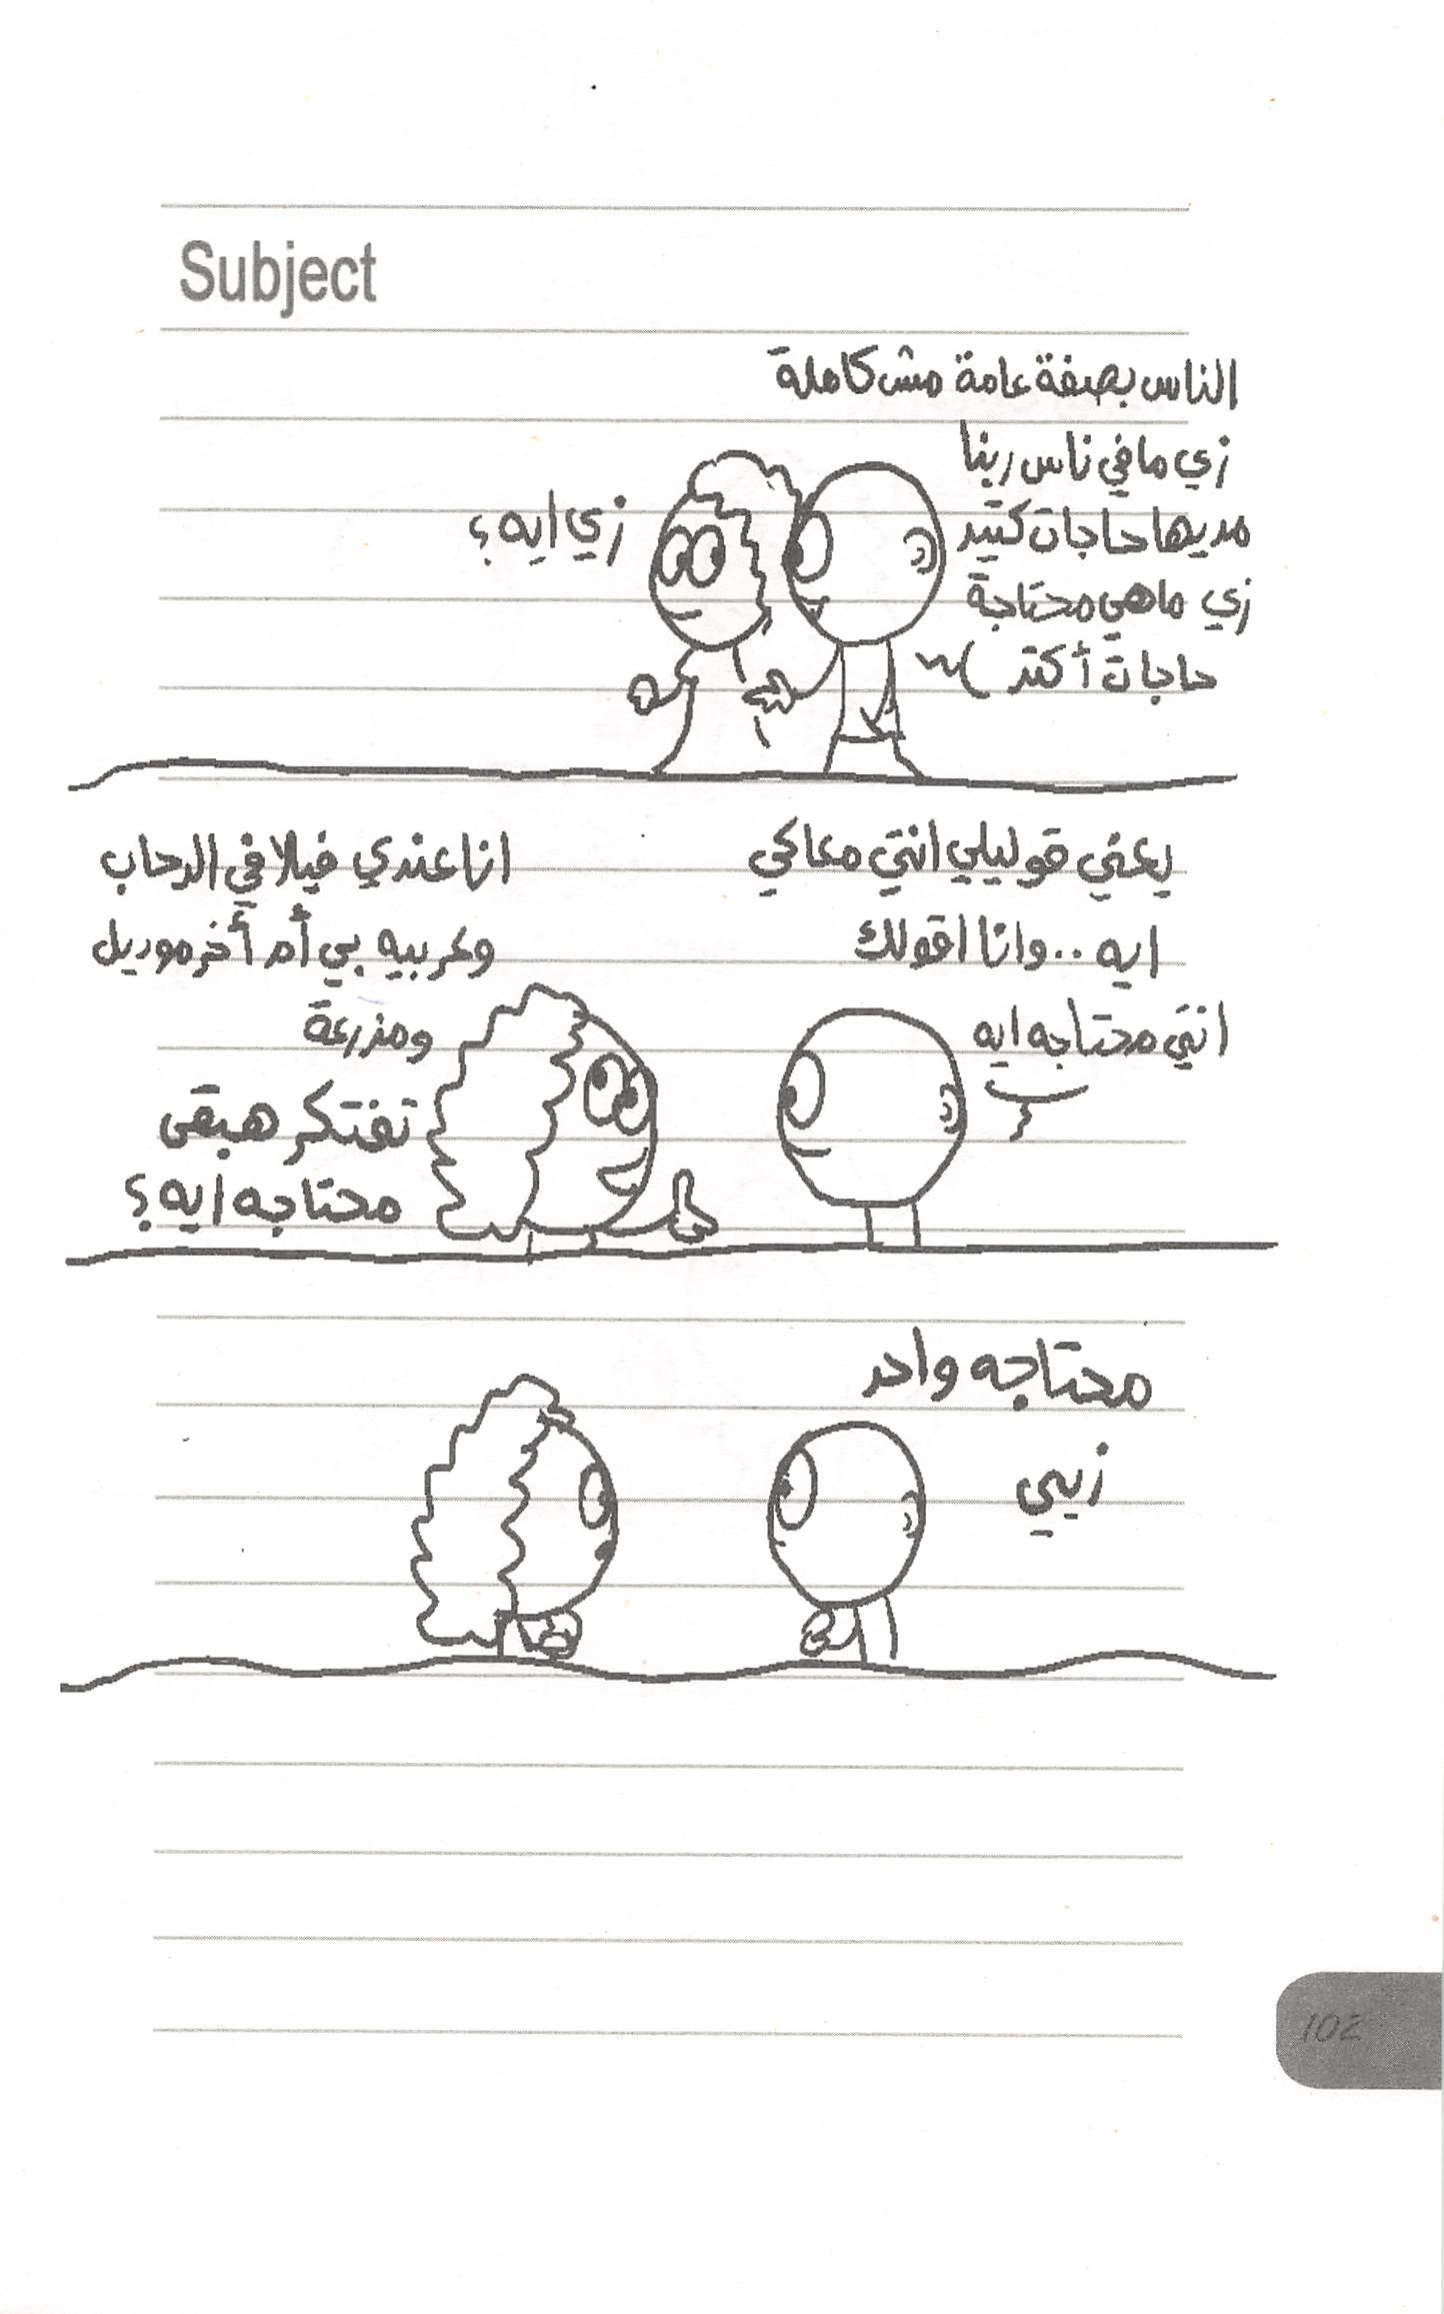 Subject
الناس بصفة عامة مش كاملة
زي ما في ناس ربنا
مديها حاجات كتير
زي ما هي محتاجة
حاجات أكتر
زي ايه؟
يعني قوليلي انتي معاكي
ايه .. وانا اقولك
انتي محتاجه ايه
انا عندي فيلا في الرحاب
وعربيه بي أم أخر موديل
ومزرعة
تفتكر هبقى
محتاجه ايه؟
محتاجه واحد
زيي
102